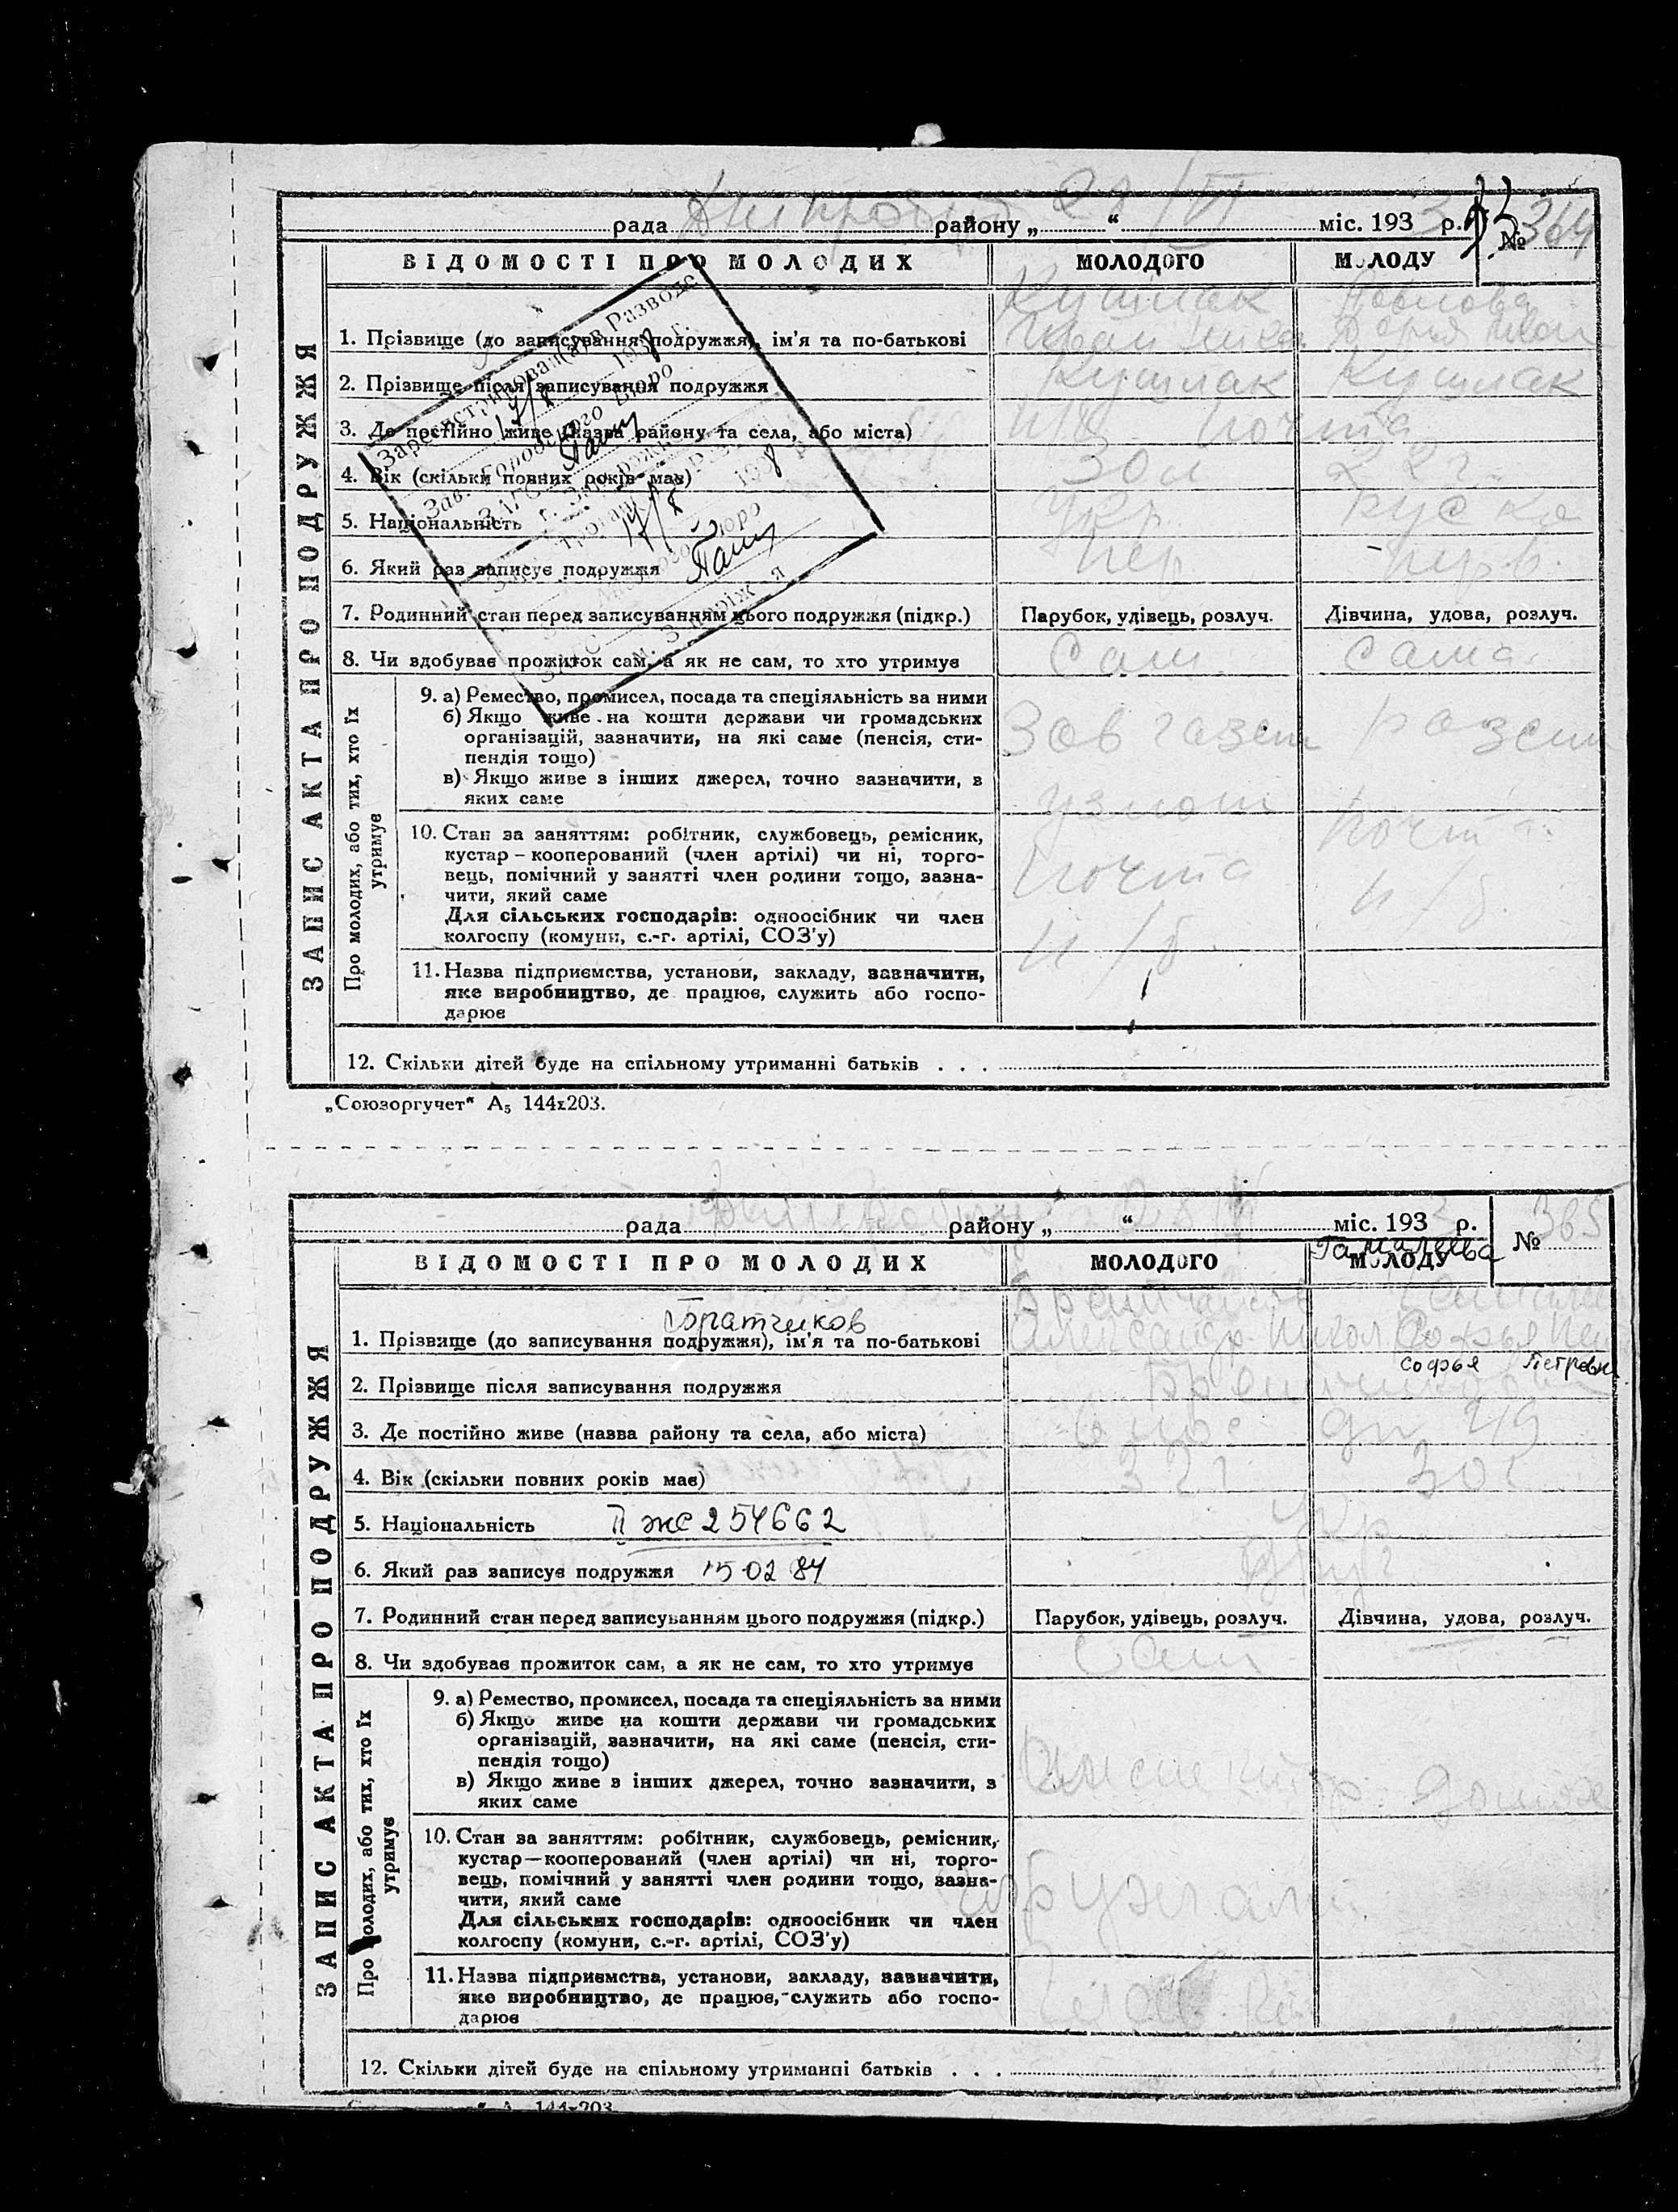 рада району „ “ міс. 193 р. № 364
ВІДОМОСТІ ПРО МОЛОДИХ МОЛОДОГО МОЛОДУ
ЗАПИС АКТА ПРО ПОДРУЖЖЯ
Кушлак Павлова
1. Прізвище (до записування подружжя), ім'я та по-батькові
2. Прізвище після записування подружжя Кушлак Кушлак
3. Де постійно живе (назва району та села, або міста) почта
4. Вік (скільки повних років має) 30 л 22 г.
5. Національність Укр. руска
6. Який раз записує подружжя пер перв.
7. Родинний стан перед записуванням цього подружжя (підкр.) Парубок, удівець, розлуч. Дівчина, удова, розлуч.
8. Чи здобуває прожиток сам, а як не сам, то хто утримує Сам Сама
Про молодих, або тих, хто їх утримує
9. а) Ремество, промисел, посада та спеціяльність за ними
б) Якщо живе на кошти держави чи громадських
організацій, зазначити, на які саме (пенсія, сти-
пендія тощо)
в) Якщо живе з інших джерел, точно зазначити, з
яких саме
10. Стан за заняттям: робітник, службовець, ремісник,
кустар – кооперований (член артілі) чи ні, торго-
вець, помічний у занятті член родини тощо, зазна-
чити, який саме
Для сільських господарів: одноосібник чи член
колгоспу (комуни, с.-г. артілі, СОЗ'у)
почта почта
н/б н/б.
11. Назва підприємства, установи, закладу, зазначити,
яке виробництво, де працює, служить або госпо-
дарює
12. Скільки дітей буде на спільному утриманні батьків . . .
„Союзоргучет“ А₅ 144х203.
Зарегистрирован(а) в Разводе
17/8 1938 г.
Зав. Городского Бюро
ЗАГС г. Запорожье
17/8 1938 р.
м. Запоріжжя
рада району „ “ міс. 193 р. № 365
Гамалеева
ВІДОМОСТІ ПРО МОЛОДИХ МОЛОДОГО МОЛОДУ
ЗАПИС АКТА ПРО ПОДРУЖЖЯ
Братчиков
1. Прізвище (до записування подружжя), ім'я та по-батькові Александр Никол. Софья
Софья Петровн
2. Прізвище після записування подружжя
3. Де постійно живе (назва району та села, або міста)
4. Вік (скільки повних років має) 32 г 30
5. Національність II ЖС 254662 Укр
6. Який раз записує подружжя 15.02 84
7. Родинний стан перед записуванням цього подружжя (підкр.) Парубок, удівець, розлуч. Дівчина, удова, розлуч.
8. Чи здобуває прожиток сам, а як не сам, то хто утримує Сам
Про молодих, або тих, хто їх утримує
9. а) Ремество, промисел, посада та спеціяльність за ними
б) Якщо живе на кошти держави чи громадських
організацій, зазначити, на які саме (пенсія, сти-
пендія тощо)
в) Якщо живе з інших джерел, точно зазначити, з
яких саме
10. Стан за заняттям: робітник, службовець, ремісник,
кустар—кооперований (член артілі) чи ні, торго-
вець, помічний у занятті член родини тощо, зазна-
чити, який саме
Для сільських господарів: одноосібник чи член
колгоспу (комуни, с.-г. артілі, СОЗ'у)
11. Назва підприємства, установи, закладу, зазначити,
яке виробництво, де працює, служить або госпо-
дарює
12. Скільки дітей буде на спільному утриманні батьків . . .
144х203.